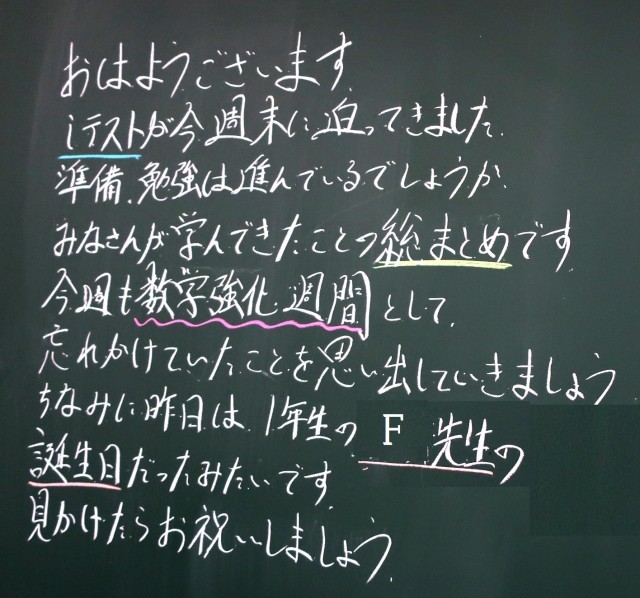 おはようございます.
iテストが今週末に迫ってきました.
準備、勉強は進んでいるでしょうか.
みなさんが学んできたことの総まとめです
今週も数学強化週間として、
忘れかけていたことを思い出していきましょう
ちなみに昨日は1年生の F 先生の
誕生日だったみたいです.
見かけたらお祝いしましょう.